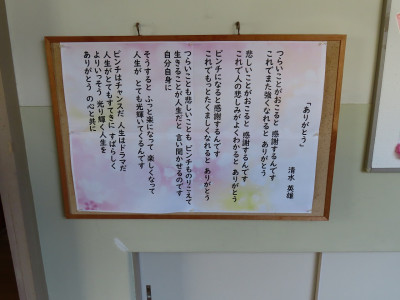 「ありがとう」
清水 英雄
つらいことがおこると 感謝するんです
これでまた強くなれると ありがとう
悲しいことがおこると 感謝するんです
これで人の悲しみがよくわかると ありがとう
ピンチになると感謝するんです
これでもっとたくましくなれると ありがとう
つらいことも悲しいことも ピンチものりこえて
生きることが人生だと 言い聞かせるのです
自分自身に
そうすると ふっと楽になって 楽しくなって
人生が とても光輝いてくるんです
ピンチはチャンスだ 人生はドラマだ
人生がとてもすてきに すばらしく
よりいっそう 光り輝く人生を
ありがとう の心と共に